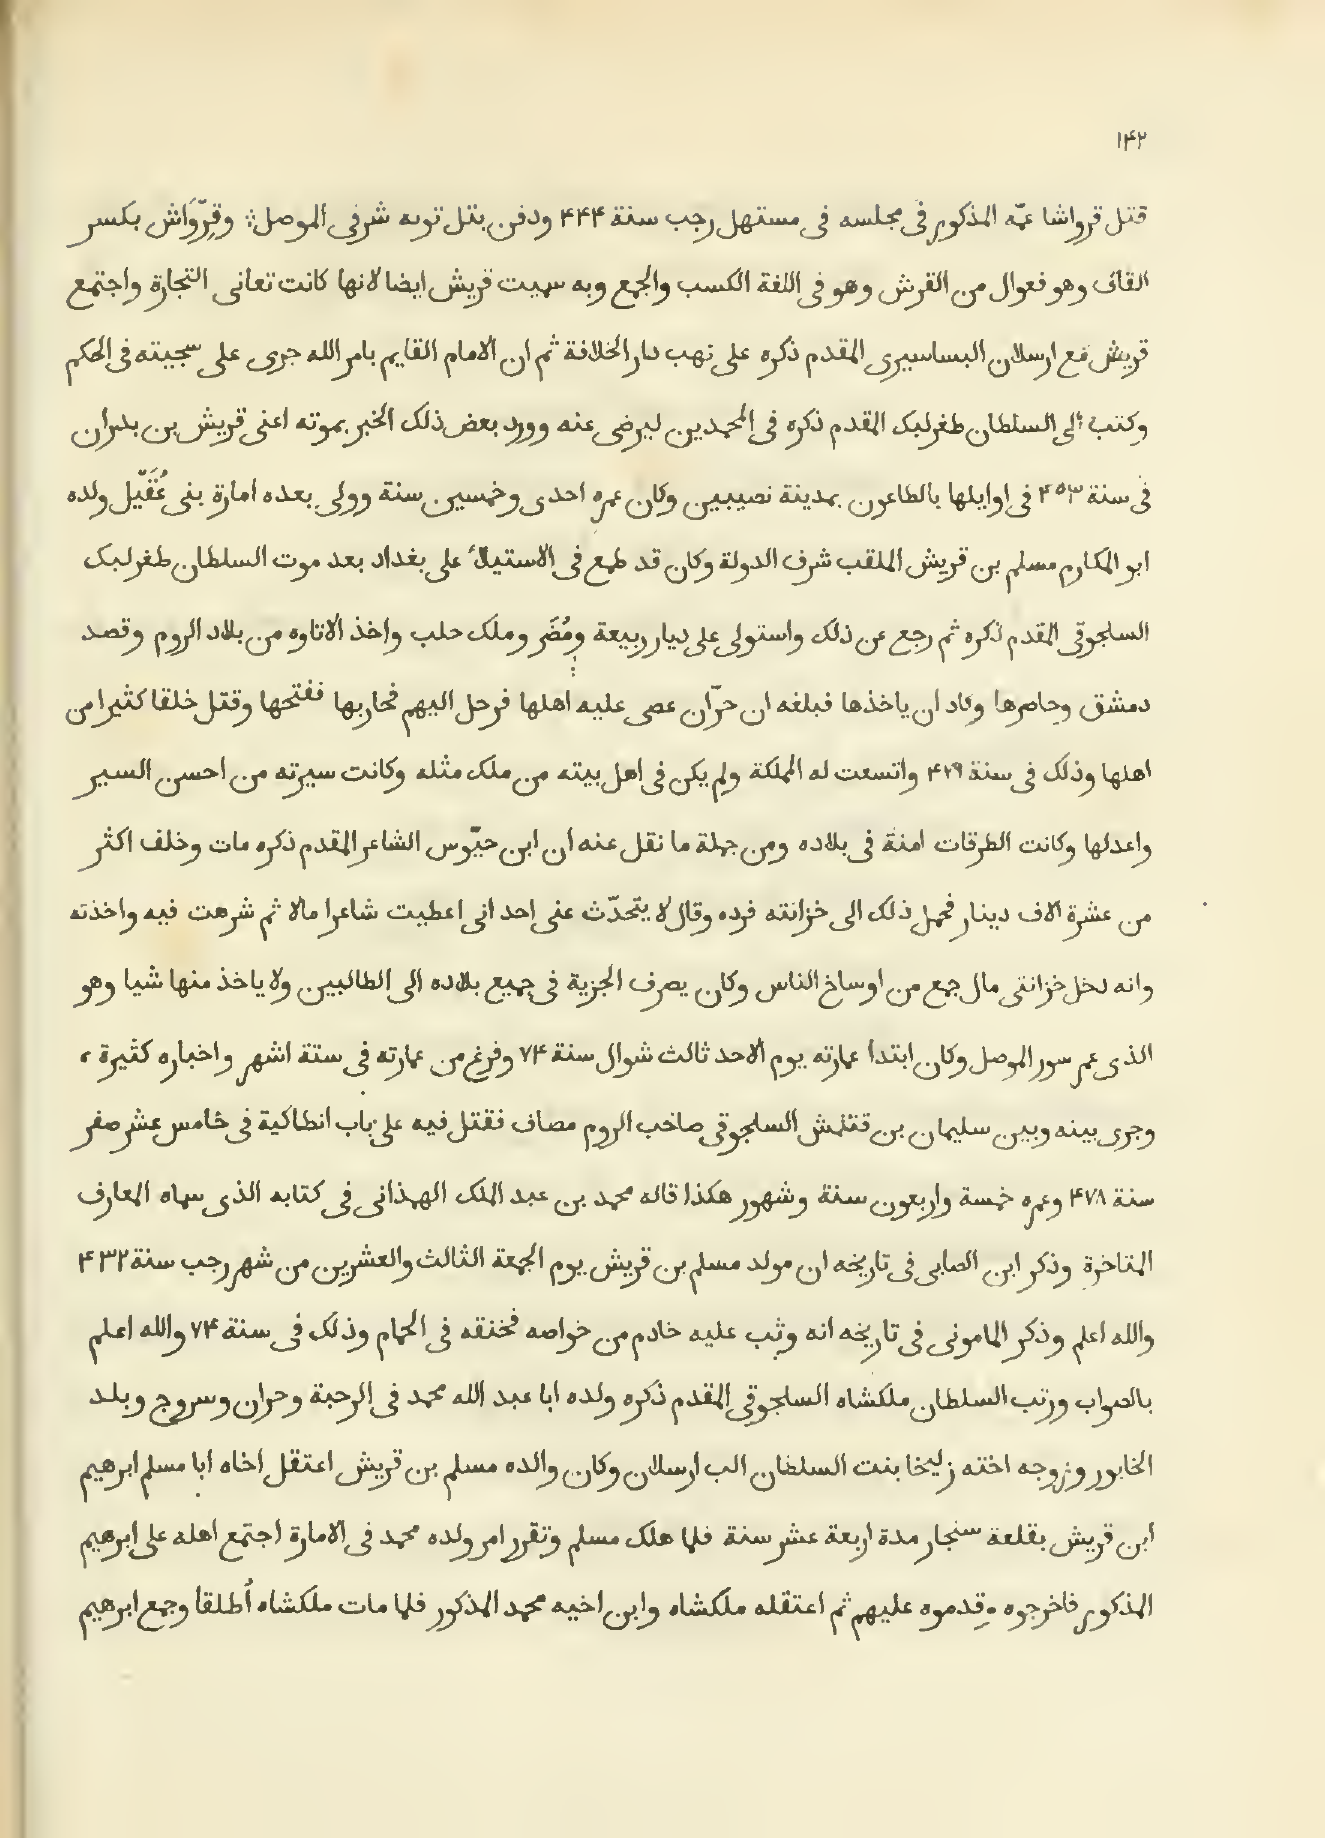 ۱۴۲
قتل قرواشا عمّه المذكور فى مجلسه فى مستهل رجب سنة ۴۴۴ ودفن بتل توبه شرفى الموصل وقِرّوَاش بكسر
القاف وهو فعوال من القرش وهو فى اللغة الكسب والجمع وبه سميت قريش ايضا لانها كانت تعانى التجارة واجتمع
قريش مع ارسلان البساسيرى المقدم ذكره على نهب دار الخلافة ثم ان الامام القايم بامر الله جرى على سجيته فى الحكم
وكتب الى السلطان طغرلبك المقدم ذكره فى المحمدين ليرضى عنه وورد بعض ذلك الخبر بموته اعنى قريش بن بدران
فى سنة ۴۵۳ فى اوايلها بالطاعون بمدينة نصيبين وكان عمره احدى وخمسين سنة وولى بعده امارة بنى عُقَيّل ولده
ابو المكارم مسلم بن قريش الملقب شرف الدولة وكان قد طمع فى الاستيلاء على بغداد بعد موت السلطان طغرلبك
السلجوقى المقدم ذكره ثم رجع عن ذلك واستولى على ديار ربيعة ومُضَر وملك حلب واخذ الاتاوه من بلاد الروم وقصد
دمشق وحاصرها وكاد ان ياخذها فبلغه ان حرّان عصى عليه اهلها فرحل اليهم فحاربها ففتحها وقتل خلقا كثيرا من
اهلها وذلك فى سنة ۴۷۹ واتسعت له المملكة ولم يكن فى اهل بيته من ملك مثله وكانت سيرته من احسن السير
واعدلها وكانت الطرقات امنة فى بلاده ومن جملة ما نقل عنه ان ابن حيّوس الشاعر المقدم ذكره مات وخلف اكثر
من عشرة الاف دينار فحمل ذلك الى خزانته فرده وقال لا يتحدّث عنى احد انى اعطيت شاعرا مالا ثم شرهت فيه واخذته
وانه دخل خزانتى مال جمع من اوساخ الناس وكان يصرف الجزية فى جميع بلاده الى الطالبين ولا ياخذ منها شيا وهو
الذى عمر سور الموصل وكان ابتدا عمارته يوم الاحد ثالث شوال سنة ۷۴ وفرغ من عمارته فى ستة اشهر واخباره كثيرة ،
وجرى بينه وبين سليمان بن قتلمش السلجوقى صاحب الروم مصاف فقتل فيه على باب انطاكية فى خامس عشر صفر
سنة ۴۷۸ وعمره خمسة واربعون سنة وشهور هكذا قاله محمد بن عبد الملك الهمذانى فى كتابه الذى سماه المعارف
المتاخرة وذكر ابن الصابى فى تاريخه ان مولد مسلم بن قريش يوم الجمعة الثالث والعشرين من شهر رجب سنة ۴۳۲
والله اعلم وذكر المامونى فى تاريخه انه وثب عليه خادم من خواصه فخنقه فى الحمام وذلك فى سنة ۷۴ والله اعلم
بالصواب ورتب السلطان ملكشاه السلجوقى المقدم ذكره ولده ابا عبد الله محمد فى الرحبة وحران وسروج وبلد
الخابور وزوجه اخته زليخا بنت السلطان الب ارسلان وكان والده مسلم بن قريش اعتقل اخاه ابا مسلم ابرهيم
ابن قريش بقلعة سنجار مدة اربعة عشر سنة فلما هلك مسلم وتقرر امر ولده محمد فى الامارة اجتمع اهله على ابرهيم
المذكور فاخرجوه وقدموه عليهم ثم اعتقله ملكشاه وابن اخيه محمد المذكور فلما مات ملكشاه أُطلقا وجمع ابرهيم